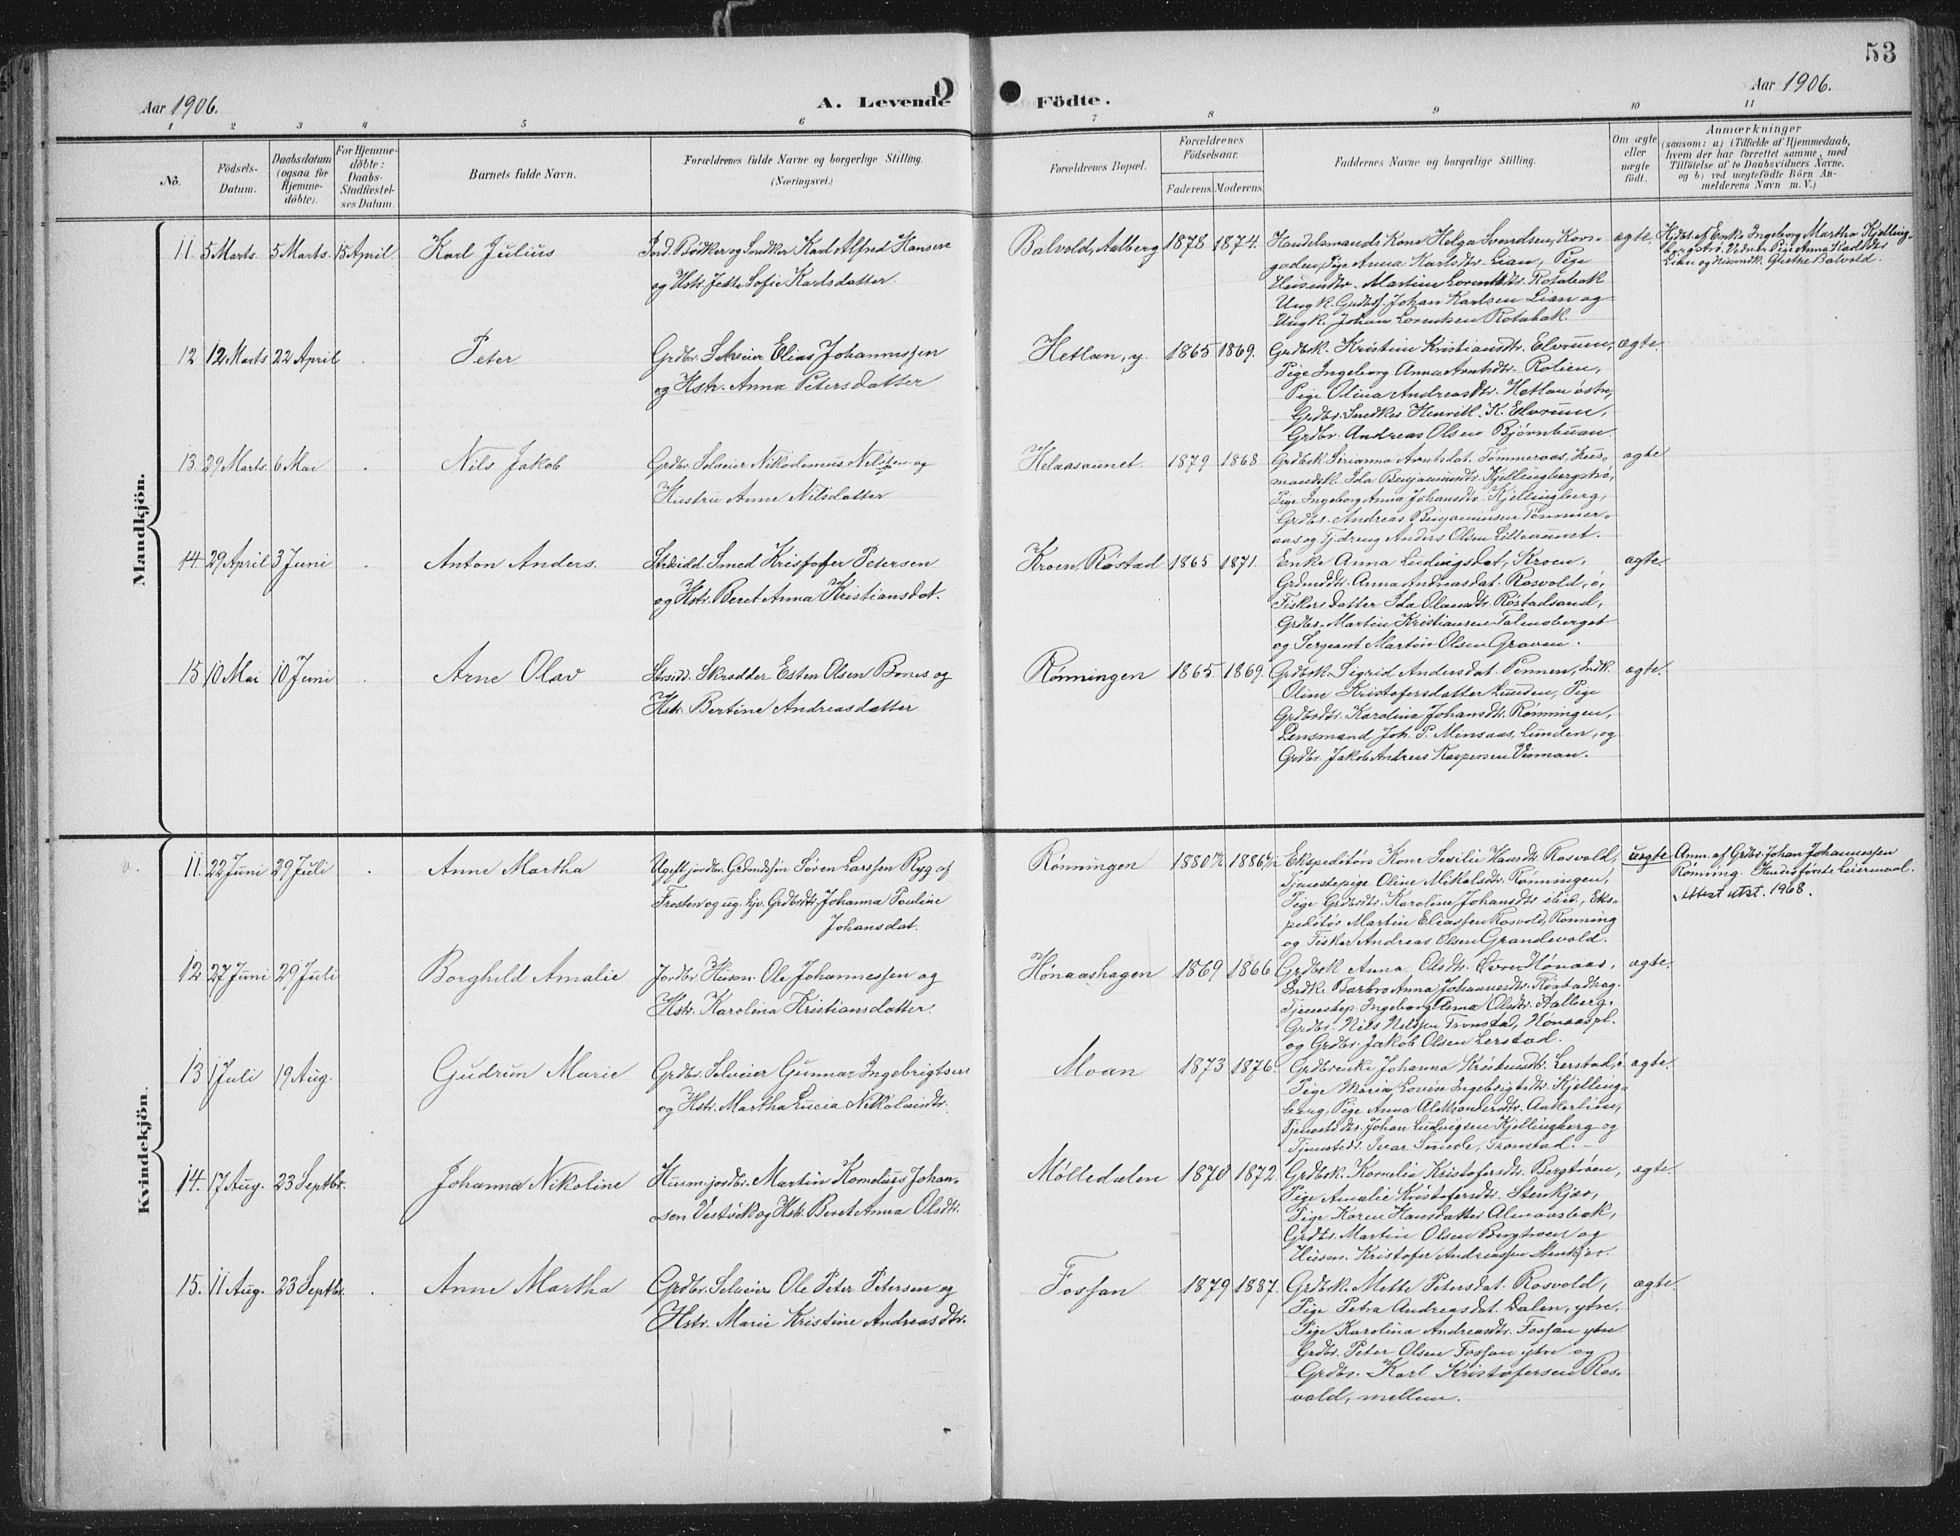 53
Aar 1906.
A. Levende Födte.
Aar 1906.
1 2 3 4 5 6 7 8 9 10 11
No.
Födsels-
Datum.
Daabsdatum
(ogsaa for
Hjemme-
döbte).
For Hjemme-
döbte:
Daabs-
Stadfæstel-
ses Datum.
Barnets fulde Navn.
Forældrenes fulde Navne og borgerlige Stilling.
(Næringsvei.)
Forældrenes Bopæl.
Forældrenes
Födselsaar.
Faderens. Moderens.
Faddernes Navne og borgerlige Stilling.
Om ægte
eller
uægte
födt.
Anmærkninger
(saasom: a) i Tilfælde af Hjemmedaab,
hvem der har forrettet samme, med
Tilföielse af to Daabsvidners Navne,
og b) ved uægtefödte Börn An-
melderens Navn m. V.)
Mandkjön.
11. 5 Marts. 5 Marts. 15 April. Karl Julius
Jord. Bøkker og Snedker Karl Alfred Hansen
og Hstr. Jette Sofie Karlsdatter.
Balvold, Aalberg 1878 1874.
Handelsmands Kone Helga Svendsen, Kors-
gaden, Pige Anna Karlsdtr. Lian, Pige
Martine Lorentsdtr. Rotabak
Ungk. Grdbrs. Johan Karlsen Lian og
Ungk. Johan Lorentsen Rotabak
ægte.
Hdbt. af Enke Ingeborg Martha Kjelling-
bergstrø. Vidner Pige Anna Karlsdtr
Lian og Grethe Balvold.
12 12 Marts 22 April . Peter
Grdbr. Selveier Elias Johannessen
og Hstr. Anna Petersdatter
Hetlan, y. 1865 1869.
Grdbrk. Kristine Kristiansdtr. Elvrum,
Pige Ingeborg Anna Arntsdtr. Rolien,
Pige Olina Andreasdtr. Hetlan østre,
Grdbr. Snedker Henrik K. Elvrum,
Grdbr. Andreas Olsen Bjørnbuan.
ægte.
13. 29 Marts. 6 Mai . Nils Jakob
Grdbr. Selveier Nikodemus Nilsen og
Hustru Anne Nilsdatter
Helaasaunet. 1879 1868
Grdbrk Sirianna Arntsdat. Tømmeraas, Hus-
mandsk. Ida Benjaminsdtr. Kjellingbergstrø,
Pige Ingeborg Anna Johansdtr. Kjellingberg,
Grdbr. Andreas Benjaminsen Tømmer-
aas og Tj.dreng Anders Olsen Lilleaunet.
ægte
14. 29 April 3 Juni . Anton Anders.
Strsidd. Smed Kristofer Petersen
og Hstr. Beret Anna Kristiansdat.
Kroen, Røstad 1865 1871.
Enke Anna Ludvigsdat, Kroen,
Anna Andreasdat. Rosvold, ø,
Fiskersdatter Ida Olausdtr. Røstadsand,
Grdbr. Martin Kristiansen Falensberget
og Sergeant Martin Olsen Graven.
ægte.
15 10 Mai 10 Juni . Arne Olav
Strsidd. Skrædder Esten Olsen Bones og
Hstr. Bertine Andreasdatter
Rønningen 1865. 1869.
Grdbrk Sigrid Andersdat. Pennen, Indk.
Oline Kristofersdatter Lunden, Pige
Grdbrdtr. Karolina Johansdtr. Rønningen,
Lensmand Joh. P. Mensaas, Lunden, og
Grdbr. Jakob Andreas Kaspersen Vinnan.
ægte.
Kvindekjön.
11. 22 Juni 29 Juli . Anne Martha
Ugift jordbr. Grdmdssøn Søren Larssen Ryg af
Frosten og ug. Grdbrdtr. Johanna Pouline
Johansdat.
Rønningen 1880 1886
Ekspeditørs Kone Sesilie Hansdtr. Rosvold,
Tjenestepige Oline Mikalsdtr. Rønningen,
Pige Grdbrdtr. Karoline Johansdtr. ibid., Eks-
peditør Martin Eliassen Rosvold, Rønning
og Fisker Andreas Olsen Grandevold.
uægte
Anm. af Grdbr. Johan Johannessen
Rønning. Hendes første Leiermaal.
Attest utst. 1968.
12 27 Juni 29 Juli . Borghild Amalie
Jordbr. Husm. Ole Johannessen og
Hstr. Karolina Kristiansdatter.
Hønaashagen 1869 1866
Grdbrk Anna Olsdtr. Øvre Hønaas,
Indke Barbro Anna Johannesdtr. Røstadhag.
Tjenestep. Ingeborg Olsdtr. Aalberg.
Grdbr. Nils Nilssen Tronstad, Hønaaspl.
og Grdbr. Jakob Olsen Lerstad.
ægte.
13 1 Juli 19 Aug. Gudrun Marie
Grdbr. Selveier Gunnar Ingebrigtsen
og Hstr. Martha Lucia Nikolaisdtr.
Moan 1873 1876.
Grdbrenke Johanna Kristiansdtr. Lerstad, ø
Pige Maria Lovise Ingebrigtsdtr. Kjelling-
berg, Pige Anna Aleksandersdtr. Aakerlien,
Johan Ludvigsen Kjellingberg og
Ivar Sunde, Tronstad.
ægte.
14. 17 Aug. 23 Septbr. Johanna Nikoline
Husm. jordbr. Martin Kornelius Johan-
sen Vestvik og Hstr. Beret Anna Olsdtr.
Mølledalen 1870 1872.
Grdbrk. Kornelia Kristofersdtr. Bergtøren,
Pige Amalie Kristofersdtr. Stenkjær,
Pige Karen Hansdatter Almaasbak,
Grdbr. Martin Olsen Bergtøren og
Husm. Kristofer Andreassen Stenkjær.
ægte.
15. 11 Aug. 23 Septbr. . Anne Martha
Grdbr. Selveier Ole Peter Petersen og
Hstr. Marie Kristine Andreasdtr.
Fossan 1879 1887.
Grdbrk. Mette Petersdat. Rosvold,
Pige Petra Andreasdat. Dalen, ytre,
Pige Karolina Andreasdtr. Fossan ytre
Grdbr. Peter Olsen Fossan ytre og
Grdbr. Karl Kristofersen Ros-
vold, mellem.
ægte.